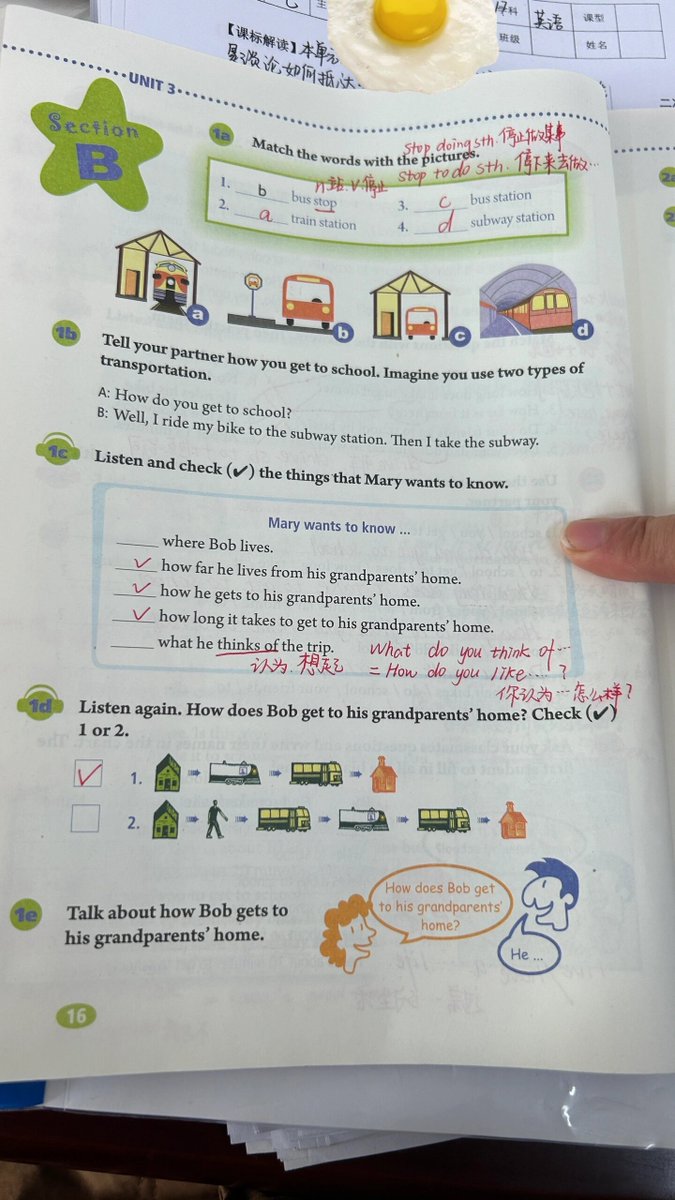 【课标解读】本单
易谈论如何抵达
学科 英语 课型
班级 姓名
UNIT 3
Section
B
1a Match the words with the pictures.
stop doing sth. 停止做某事
stop to do sth. 停下来去做…
n站.v停止
1. b bus stop 3. c bus station
2. a train station 4. d subway station
a b c d
1b Tell your partner how you get to school. Imagine you use two types of
transportation.
A: How do you get to school?
B: Well, I ride my bike to the subway station. Then I take the subway.
1c Listen and check (✔) the things that Mary wants to know.
Mary wants to know ...
____ where Bob lives.
✓ how far he lives from his grandparents' home.
✓ how he gets to his grandparents' home.
✓ how long it takes to get to his grandparents' home.
____ what he thinks of the trip.
认为.想起
What do you think of…
= How do you like……?
你认为…怎么样?
1d Listen again. How does Bob get to his grandparents' home? Check (✔)
1 or 2.
✓ 1.
2.
1e Talk about how Bob gets to
his grandparents' home.
How does Bob get
to his grandparents'
home?
He ...
16